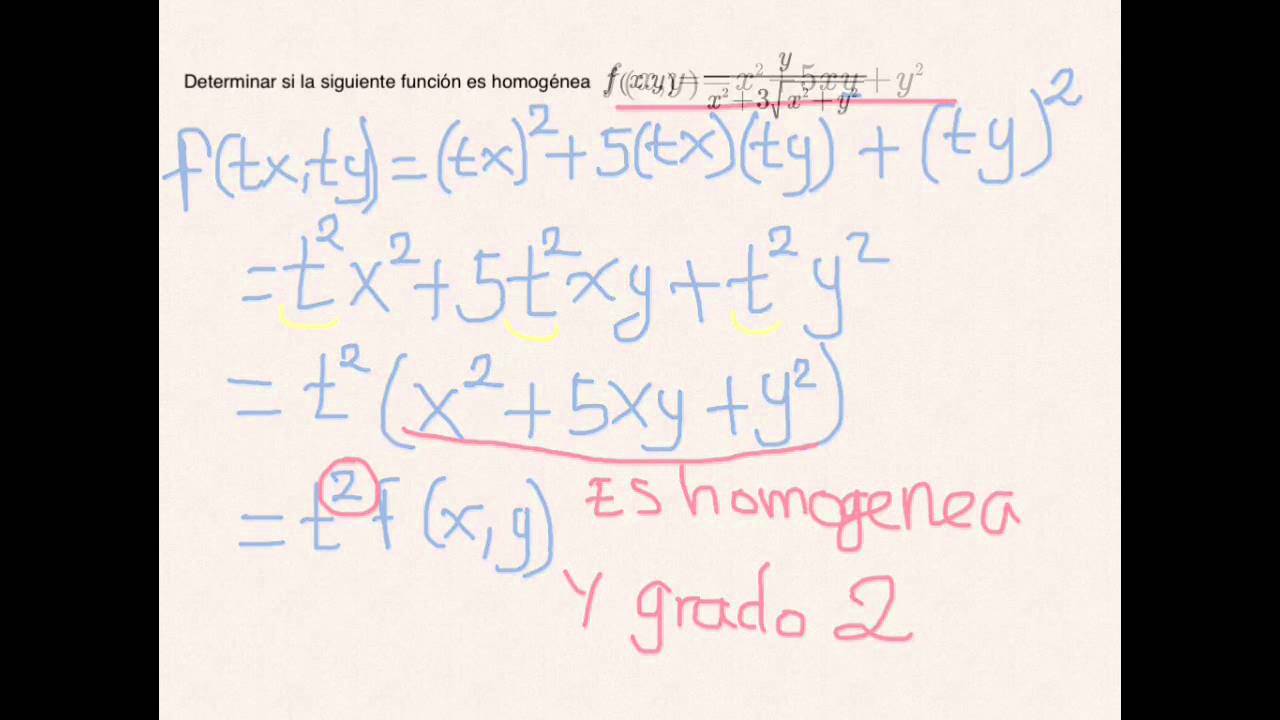 Determinar si la siguiente función es homogénea
f(tx,ty) = (tx)² + 5(tx)(ty) + (ty)²
= t²x² + 5t²xy + t²y²
= t²(x² + 5xy + y²)
= t²f(x,y) Es homogenea
Y grado 2